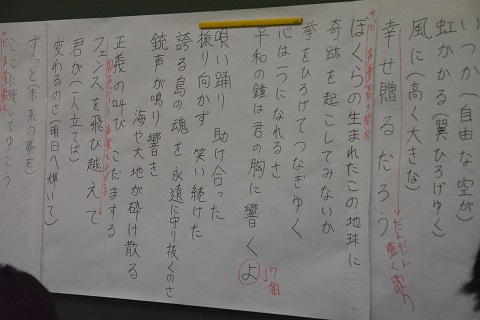 いつか(自由な空が)
虹かかる翼ひろげゆく)
風に(高く大きな)
幸せ贈るだろう
だんだん強く歌う
ぼくらの生まれたこの地球に
奇跡を起こしてみないか
拳をひろげてつなぎゆく
心は一つになれるさ
平和の鐘は君の胸に響くよ
7拍
唄い踊り 助け合った
振り向かず 笑い続けた
誇る島の魂を永遠に守り抜くのさ
銃声が鳴り響き
海や大地が砕け散る
正義の叫び こだまする
フェンスを飛び越えて
君が(一人立てば)
変わるのさ(明日へ輝いて)
ずっと(未来の夢を)
ここに
てゆこう